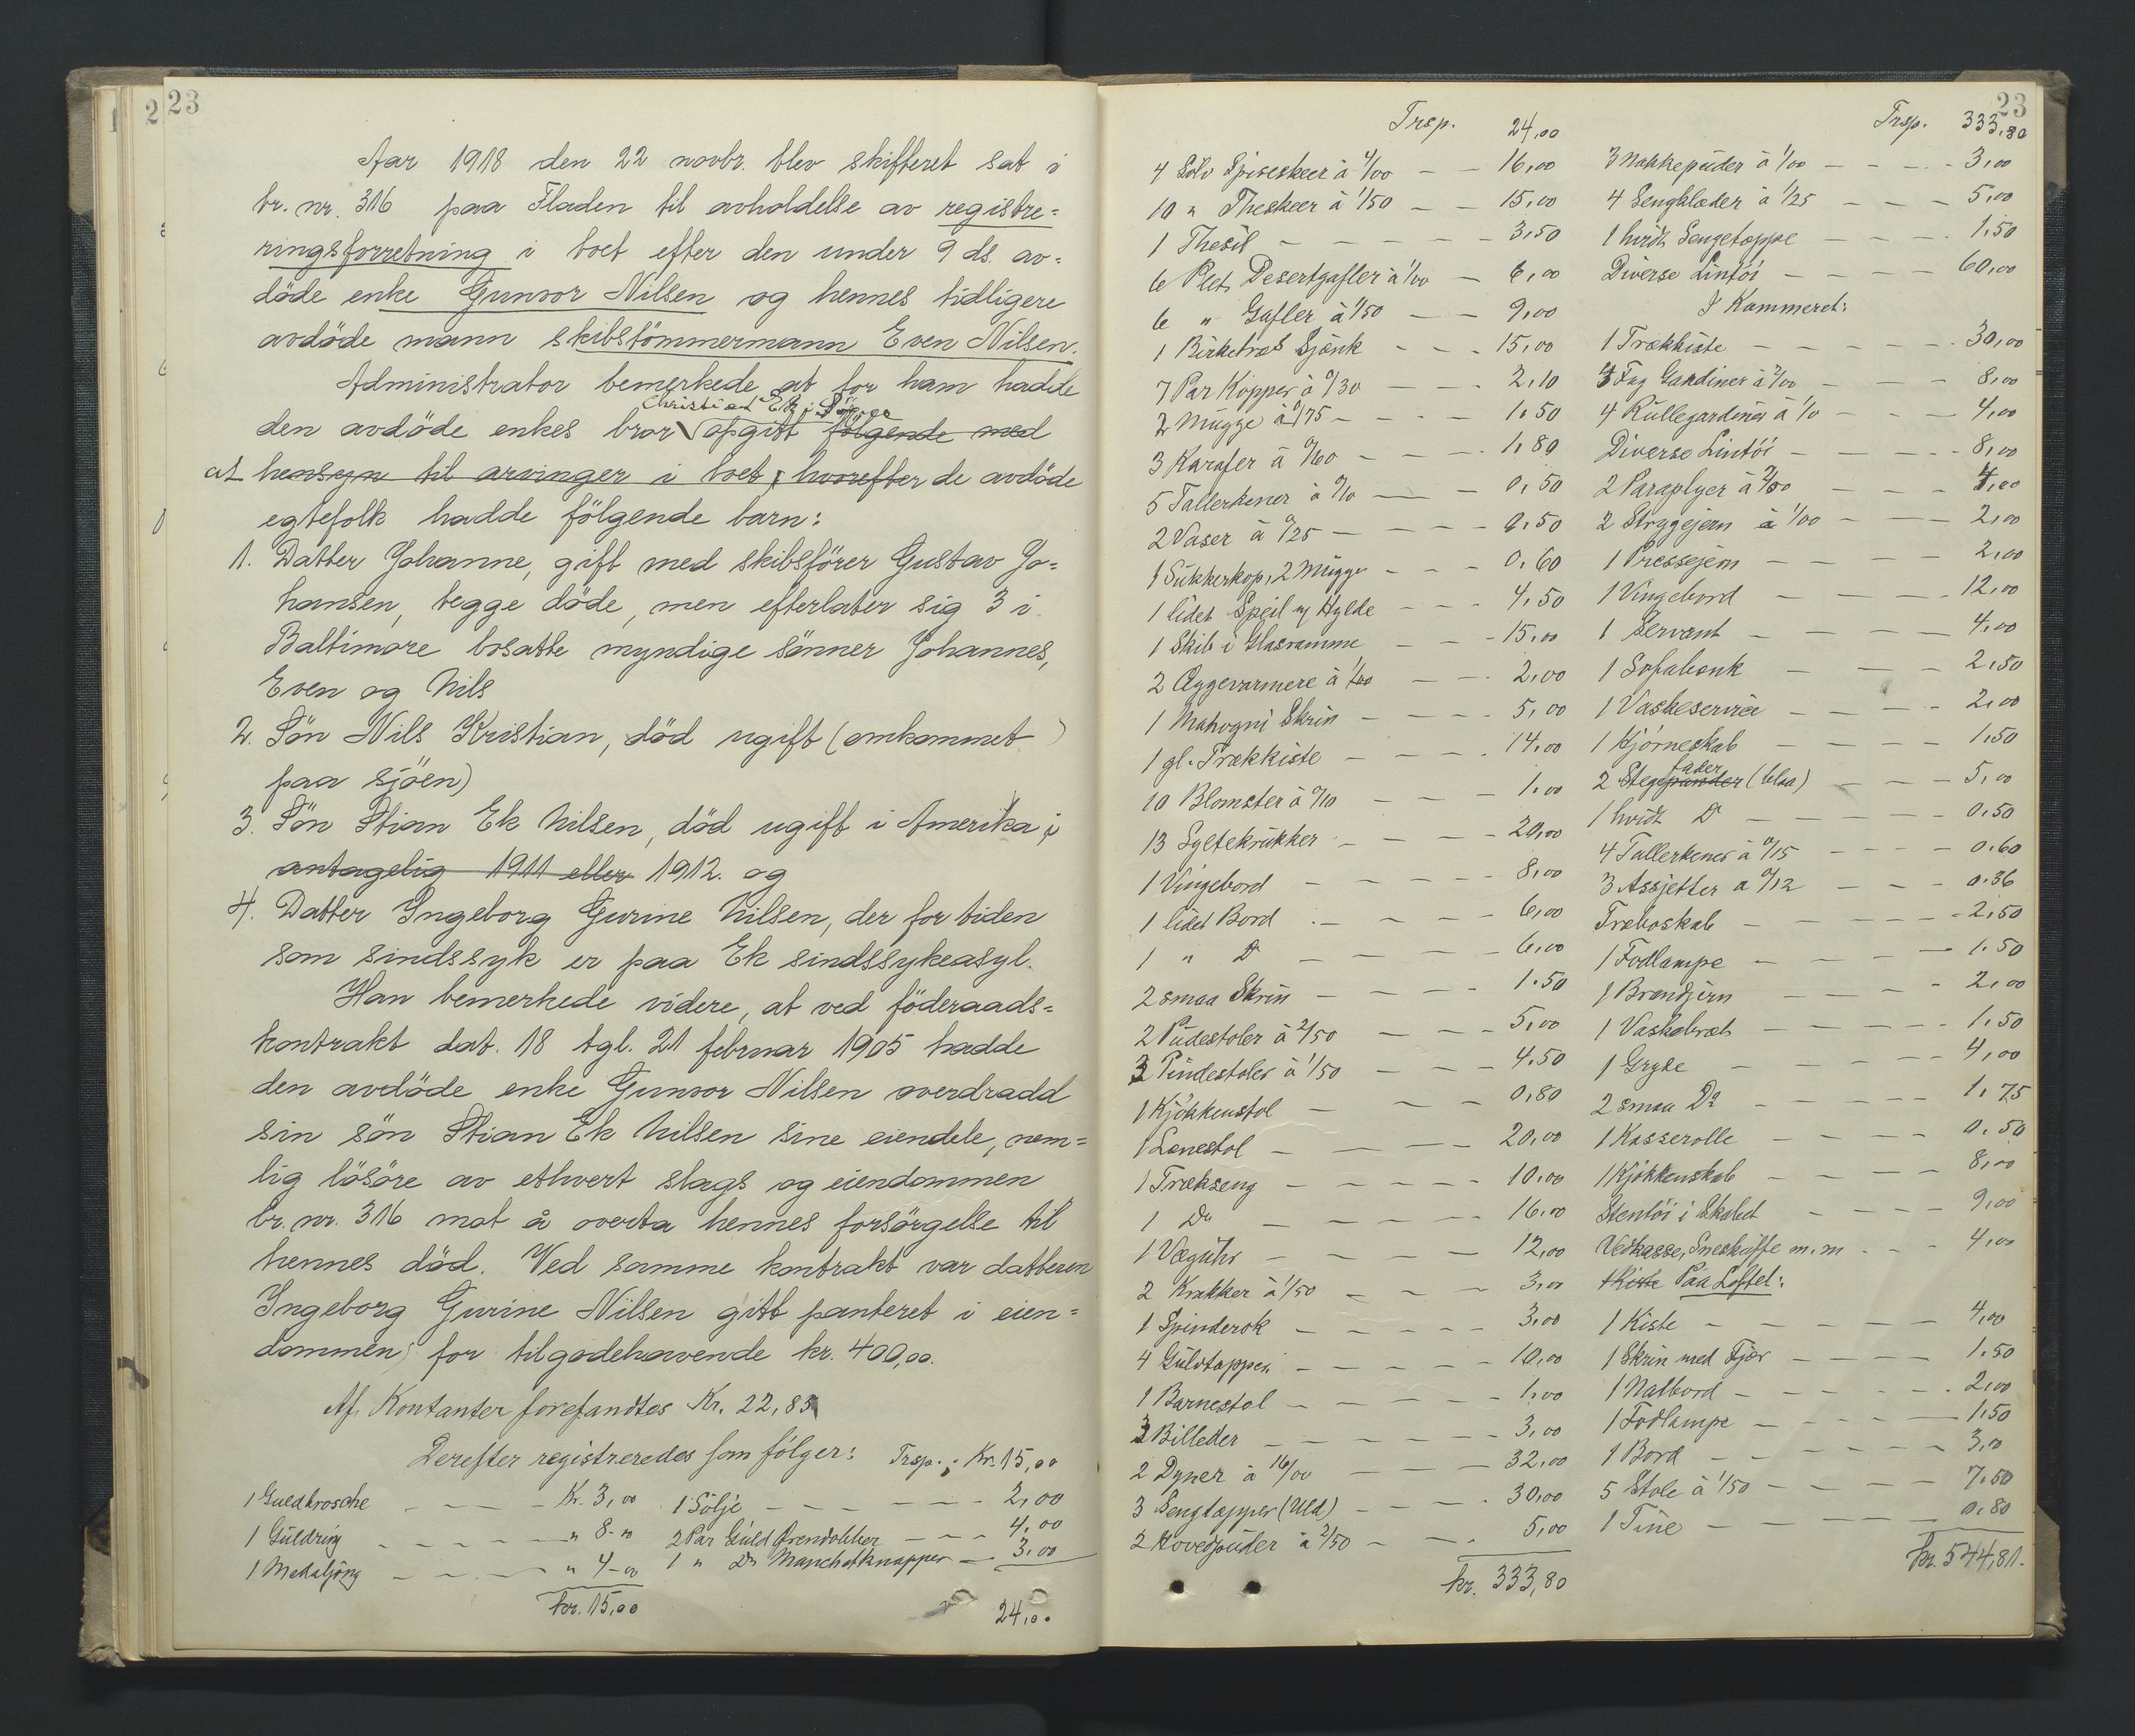 23
2
1
Aar 1918 den 22 novbr. blev skifteret sat i
br. nr. 316 paa Fladen til avholdelse av registre=
ringsforretning i boet efter den under 9 ds. av=
döde enke Gunvor Nilsen og hennes tidligere
avdöde mann skibstömmermann Even Nilsen.
Administrator bemerkede at for ham hadde
Christian Ek
den avdöde enkes bror opgitt fölgende med
at hensyn til arvinger i boet, hvorefter de avdöde
egtefolk hadde fölgende barn:
1. Datter Johanne, gift med skibsförer Gustav Jo=
hansen, begge döde, men efterlater sig 3 i
Baltimore bosatte myndige sönner Johannes,
Even og Nils
2. Sön Nils Kristian, död ugift (omkommet
paa sjöen)
3. Sön Stian Ek Nilsen, död ugift i Amerika i
antagelig 1911 eller 1912. og
4. Datter Ingeborg Gurine Nilsen, der for tiden
som sindssyk er paa Ek sindssykeasyl.
Han bemerkede videre, at ved föderaads=
kontrakt dat. 18 tgl. 21 februar 1905 hadde
den avdöde enke Gunvor Nilsen overdradd
sin sön Stian Ek Nilsen sine eiendele, nem=
lig lösöre av ethvert slags og eiendommen
br. nr. 316 mot å overta hennes forsörgelse til
hennes död. Ved samme kontrakt var datteren
Ingeborg Gurine Nilsen gitt panteret i eien=
dommen for tilgodehavende kr. 400,00.
Af Kontanter forefandtes Kr. 22,83
Derefter registreredes som fölger: Trsp. Kr. 15,00
1 Guldbrosche — Kr. 3,00 1 Sölje — 2,00
1 Guldring — " 8-00 2 Par Guld Örendobber — 4,00
1 Medaljong — " 4-00 1 " Do Manchetknapper — 3,00
kr. 15,00 24,00
23
Trsp. 24,00
4 Sölv Spiseskeer à 4/00 — 16,00
10 " Theskeer à 1/50 — 15,00
1 Thesil — 3,50
6 Plet Desertgafler à 1/00 — 6,00
6 " Gafler à 1/50 — 9,00
1 Birketræs Sjenk — 15,00
7 Par Kopper à 0/30 — 2,10
2 Mugge à 0/75 — 1,50
3 Karafer à 0/60 — 1,80
5 Tallerkener à 0/10 — 0,50
2 Vaser à 0/25 — 0,50
1 Sukkerkop, 2 Mugge — 0,60
1 lidet Speil m/ Hylde — 4,50
1 Skib i Glasramme — 15,00
2 Æggevarmere à 1/00 — 2,00
1 Mahogni Skrin — 5,00
1 gl. Trækkiste — 14,00
10 Blomster à 0/10 — 1,00
13 Syltekrukker — 20,00
1 Vingebord — 8,00
1 lidet Bord — 6,00
1 " Do — 6,00
2 smaa Skrin — 1,50
2 Pudestoler à 2/50 — 5,00
3 Pindestoler à 1/50 — 4,50
1 Kjökkenstol — 0,80
1 Lænestol — 20,00
1 Trækseng — 10,00
1 Do — 16,00
1 Væguhr — 12,00
2 Krakker à 1/50 — 3,00
1 Spinderok — 3,00
4 Gulvtepper — 10,00
1 Barnestol — 1,00
3 Billeder — 3,00
2 Dyner à 16/00 — 32,00
3 Sengtepper (Uld) — 30,00
2 Hovedpuder à 2/50 — 5,00
kr. 333,80
Trsp. 333,80
3 Nakkepuder à 1/00 — 3,00
4 Sengklæder à 1/25 — 5,00
1 hvidt Sengetæppe — 1,50
Diverse Lintöi — 60,00
I Kammeret:
1 Trækkiste — 30,00
4 Fag Gardiner à 2/00 — 8,00
4 Rullegardiner à 1/0 — 4,00
Diverse Lintöi — 8,00
2 Paraplyer à 2/00 — 4,00
2 Strygejern à 1/00 — 2,00
1 Pressejern — 2,00
1 Vingebord — 12,00
1 Servant — 4,00
1 Sofabenk — 2,50
1 Vaskeservice — 2,00
1 Hjörneskab — 1,50
fader
2 Stegepander (blaa) — 5,00
1 hvidt Do — 0,50
4 Tallerkener à 0/15 — 0,60
3 Assjetter a 0/12 — 0,36
Træboskab — 2,50
1 Fodlampe — 1,50
1 Brendjern — 2,00
1 Vaskebræt — 1,50
1 Gryte — 4,00
2 smaa Do — 1,75
1 Kasserolle — 0,50
1 Kjökkenskab — 8,00
Stentöi i Skabet — 9,00
Vedkasse, Sneskuffe m.m — 4,00
Kiste Paa Loftet:
1 Kiste — 4,00
1 Skrin med Fjær — 1,50
1 Natbord — 2,00
1 Fodlampe — 1,50
1 Bord — 3,00
5 Stole à 1/50 — 7,50
1 Tine — 0,80
kr. 544,81.